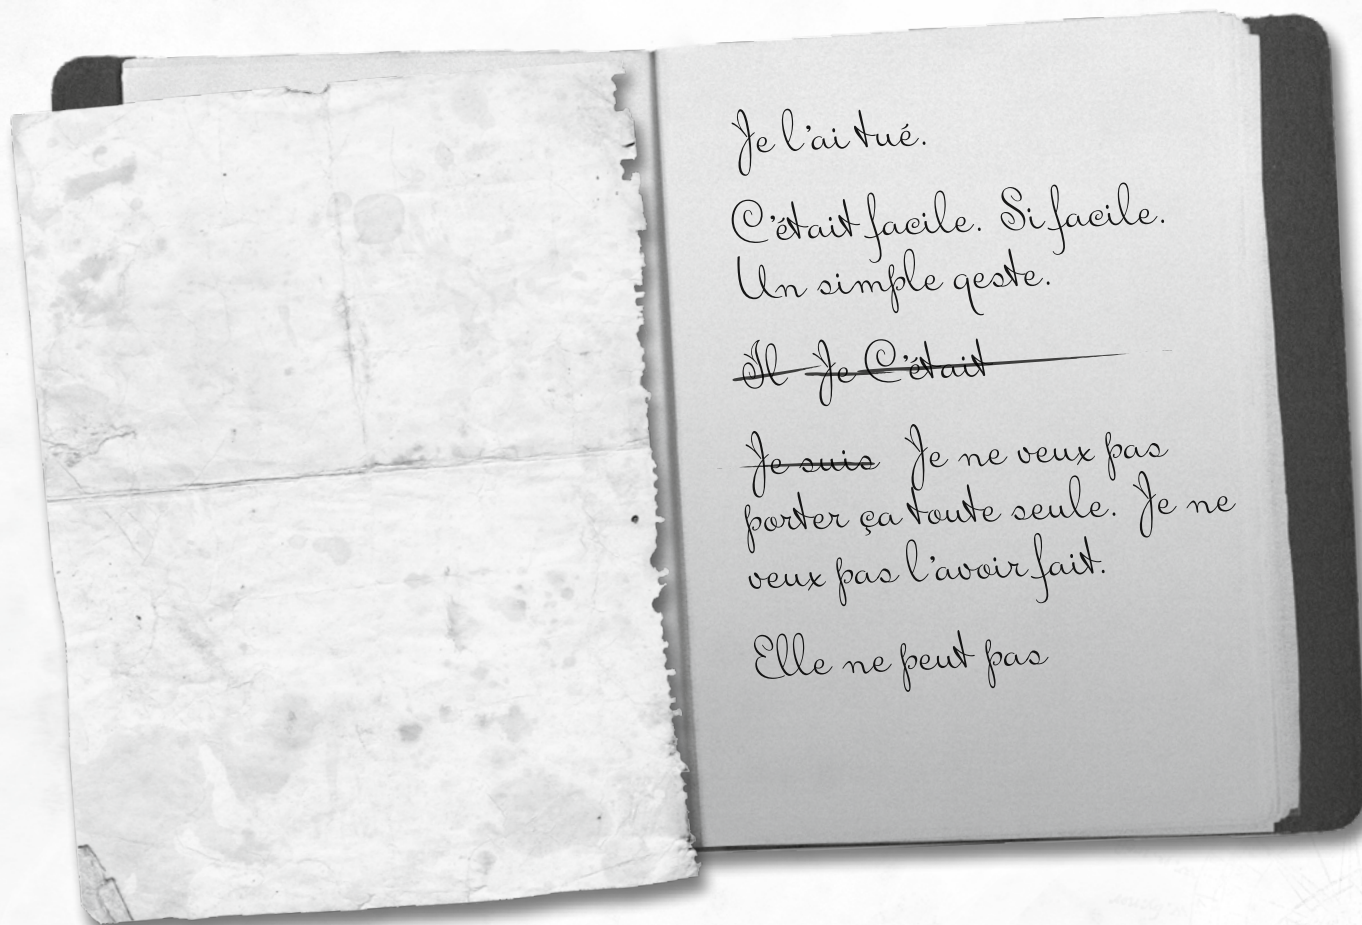 Je l'ai tué.
C'était facile. Si facile.
Un simple geste.
Il Je C'était
Je suis Je ne veux pas
porter ça toute seule. Je ne
veux pas l'avoir fait.
Elle ne peut pas